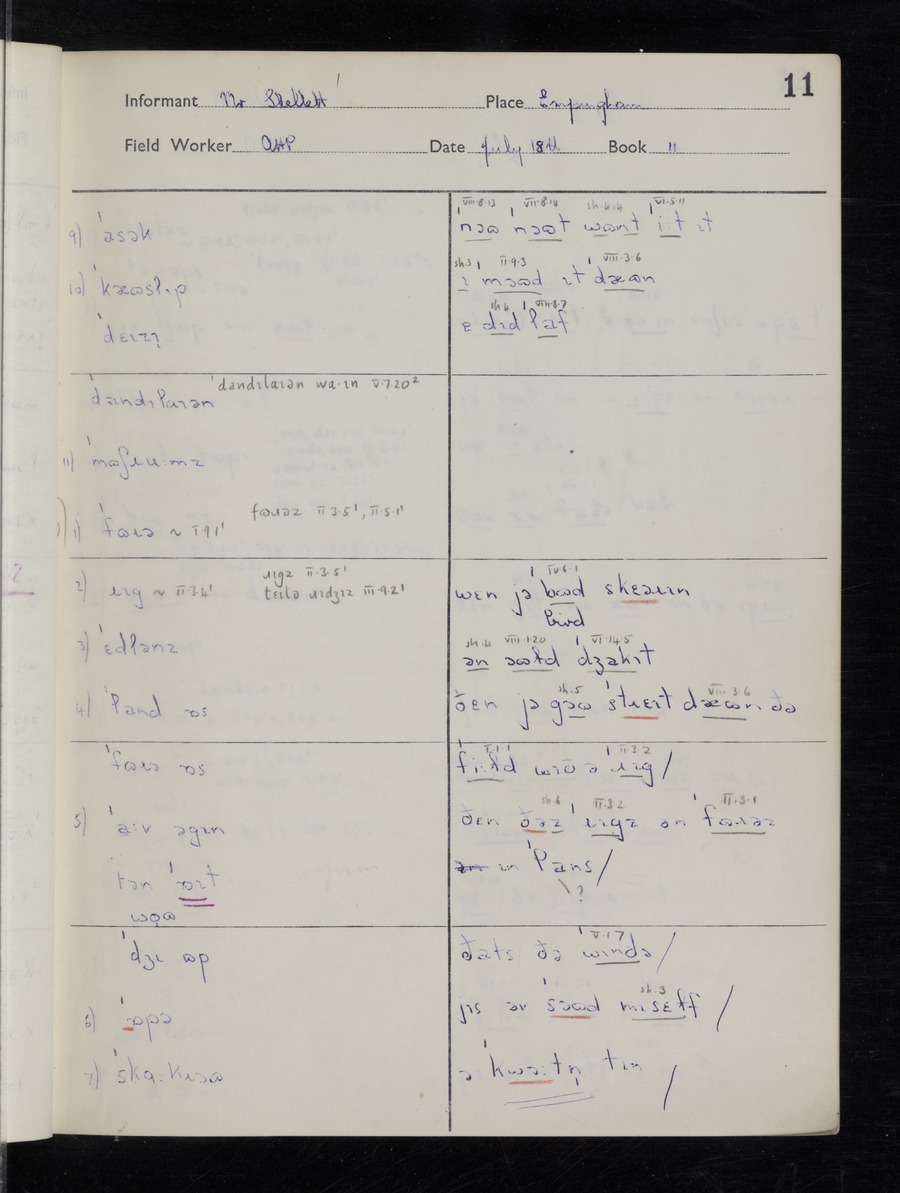 11
Informant Mr Skellett Place Empingham
Field Worker OAHP Date July 18th Book II
9) ˈasək
10) ˈkæʊslɪp
ˈdɛɪzɪ
ˈdandɪlaɪən ˈdandɪlaɪən waːɪn V.7.20²
11) ˈmʊʃɹuːmz
1) ˈfʊɹə ~ I 9 1¹ fʊɹəz II 3.5¹, II.5.1¹
2) ɹɪg ~ II 3.4¹ ɹɪgz II.3.5¹
tɛɪtə ɹɪdʒɪz III.9.2¹
3) ˈɛdlənz
4) ˈland ɒs
ˈfʊɹə ɒs
5) ˈaːv əgɪn
tən ˈɒɪt
ˈdʒɪ ʊp
6) ˈɒpə
7) ˈskaːkɹəʊ
VIII.8.13 VII.8.14 sh.4.4 VI.5.11
nəʊ nəʊt want iːt ɪt
sh.3 II.9.3 VIII.3.6
ɪ məʊd ɪt dæʊn
sh.4 VIII.8.7
ɛ dɪd ˈlaf
IV.6.1
wɛn jə ˈbəd skɛəɹɪn
bird
sh.4 VIII.1.20 VI.14.5
ən əʊld ˈdʒakɪt
sh.5 VIII.3.6
ðɛn jə gəʊ ˈstɹɛɪt dæʊn ðə
I.1.1 II.3.2
ˈfiːld wɪð ə ˈɹɪg /
sh.6 II.3.2 II.3.1
ðɛn ðəz ˈɹɪgz ən ˈfʊɹəz
ɪn ˈlans /
?
V.1.7
ðats ðə ˈwɪndə /
sh.3
jɪs əv ˈsəʊd mɪsɛlf /
ə ˈkwəːtn̩ tɪn /